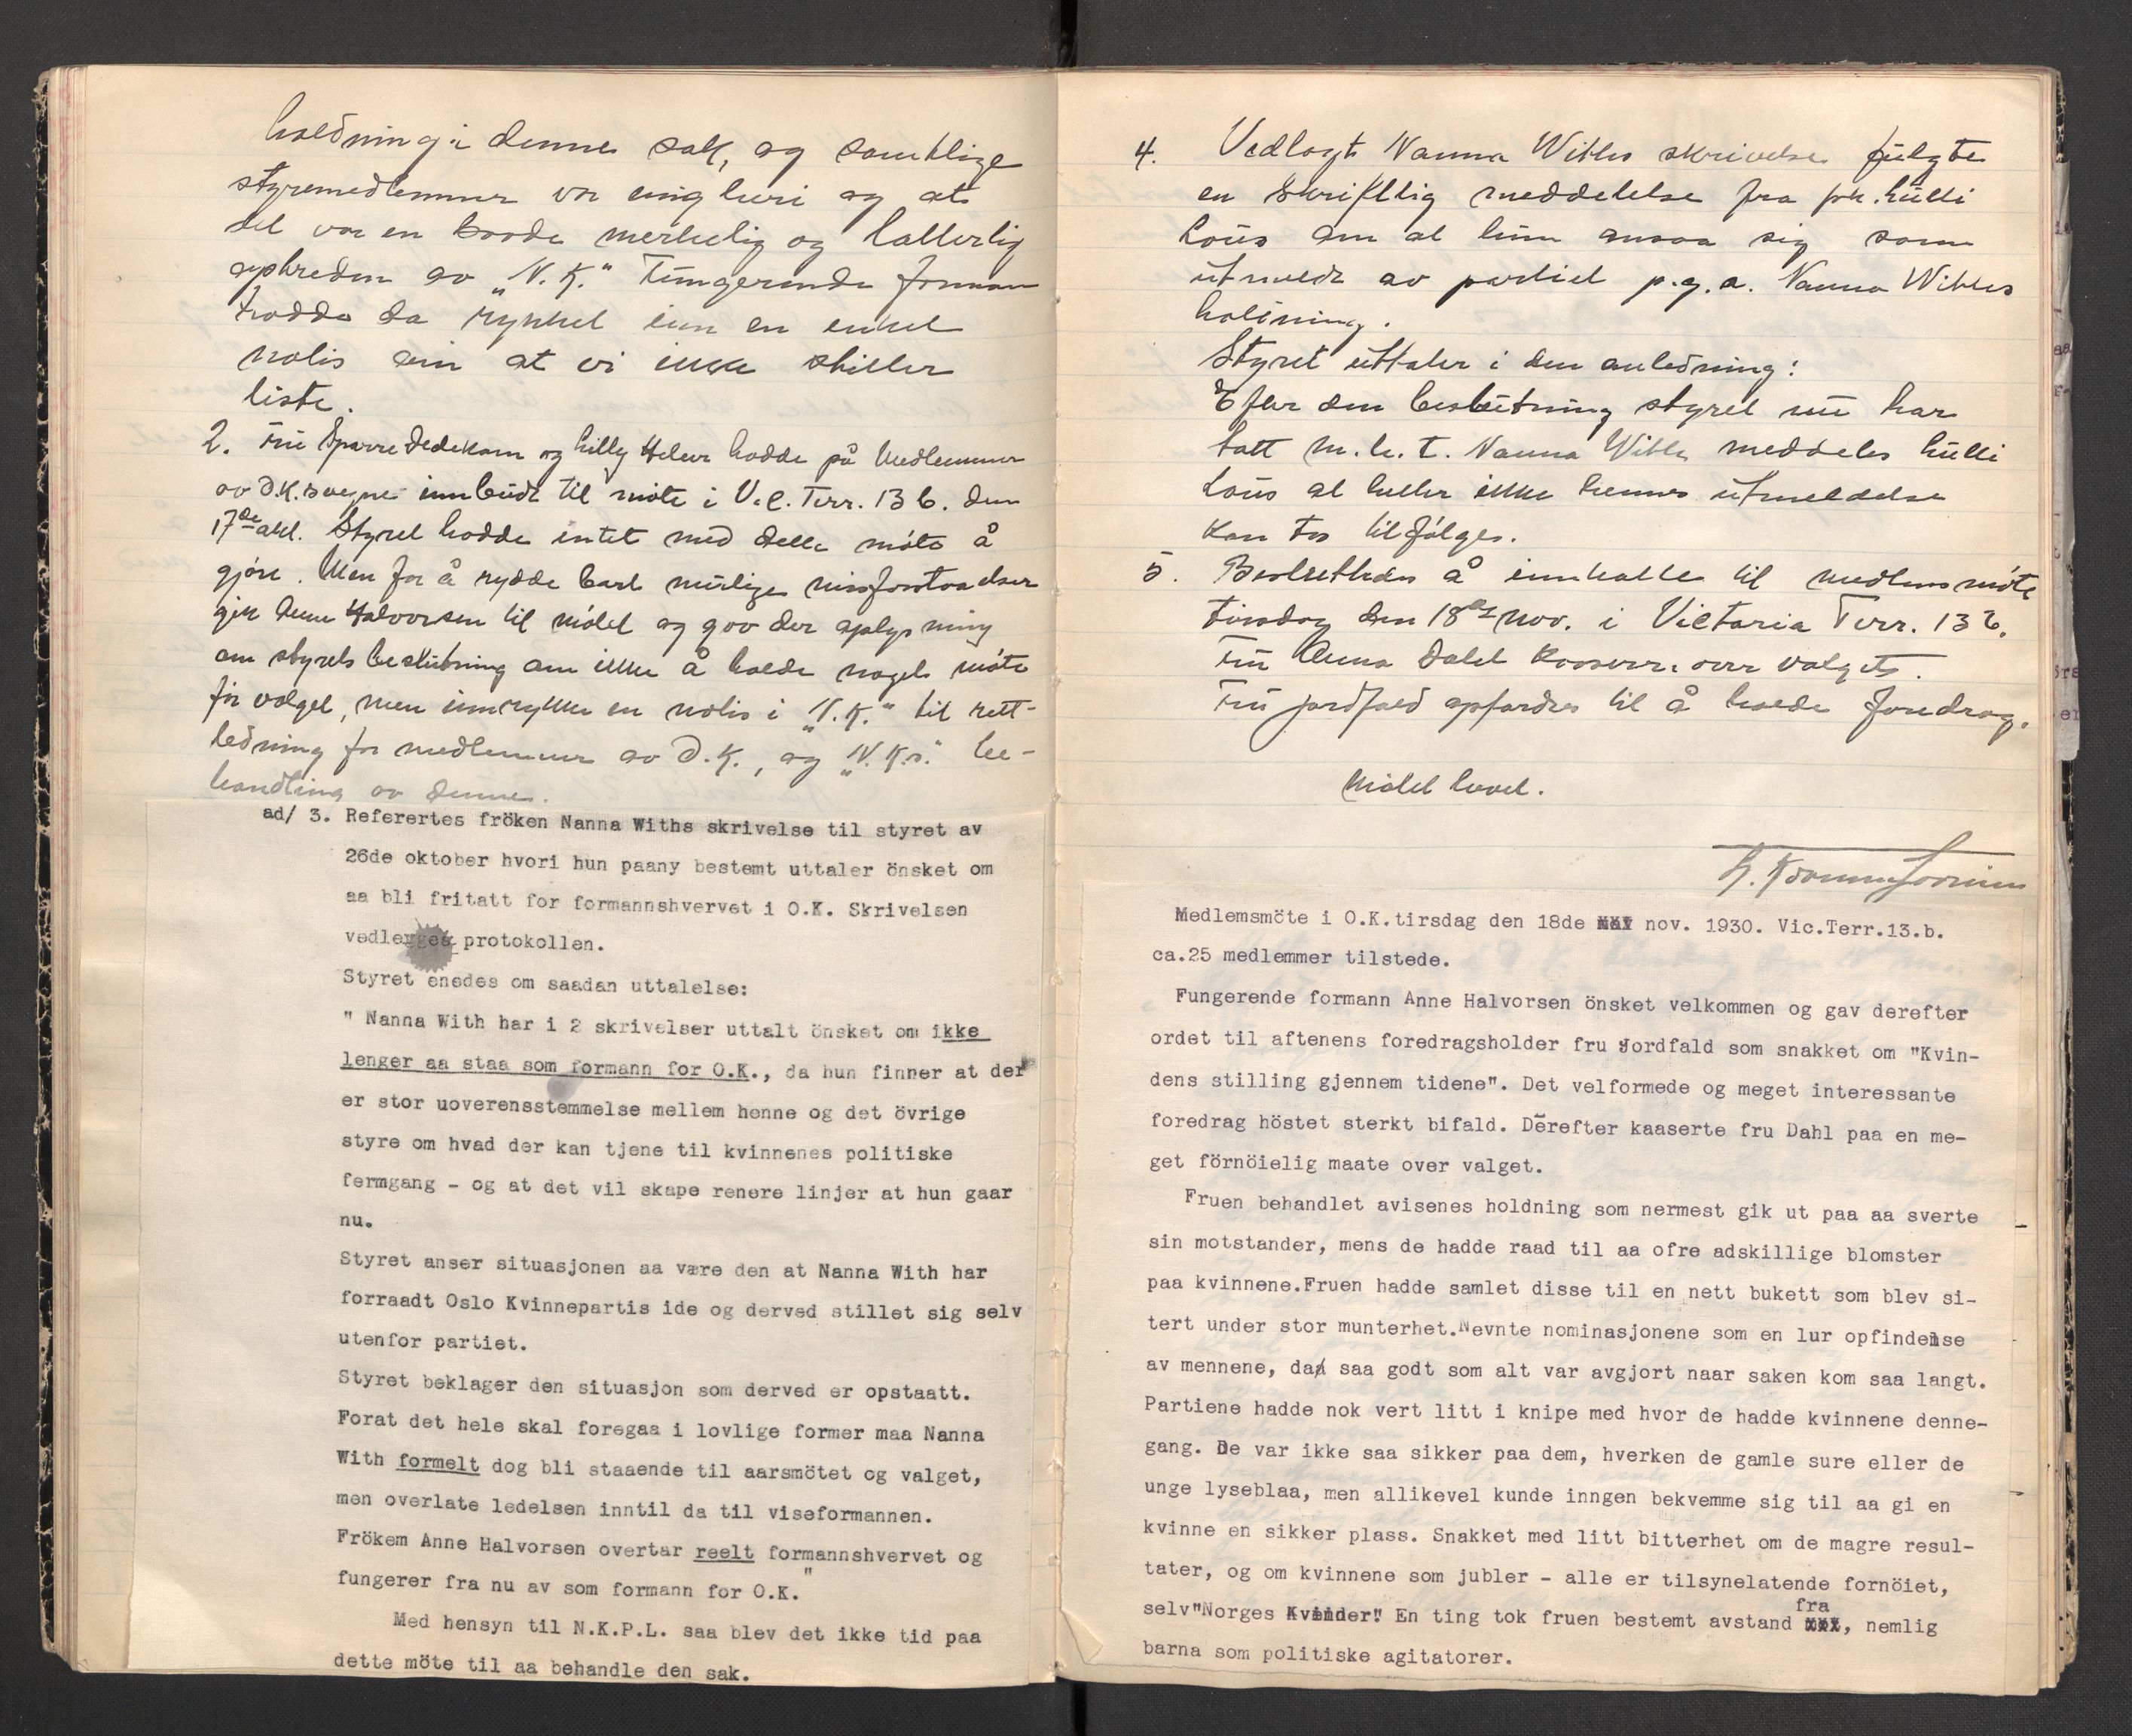 holdning i denne sak, og samtlige
styremedlemmer var enig heri og at
det var en baade merkelig og latterlig
av "N.K." Fungerende formann
hadde da rykket inn en enkel
notis om at vi ikke stiller
liste.
2. Fru Sparre Dedekam og Lilly Heber hadde på Medlemmer
av O.K.s vegne innbudt til møte i Vic. Terr. 13 b. den
17de okt. Styret hadde intet med dette møte å
gjøre. Men for å rydde bort mulige missforstaaelser
gik Anne Halvorsen til møtet og gav der oplysning
om styrets beslutning om ikke å holde noget møte
før valget, men innrykke en notis i "N.K." til rett-
ledning for medlemmer av O.K., og "N.K.s." be-
handling av denne.
ad/ 3. Referertes fröken Nanna Withs skrivelse til styret av
26de oktober hvori hun paany bestemt uttaler önsket om
aa bli fritatt for formannshvervet i O.K. Skrivelsen
vedlegges protokollen.
Styret enedes om saadan uttalelse:
" Nanna With har i 2 skrivelser uttalt önsket om ikke
lenger aa staa som formann for O.K., da hun finner at der
er stor uoverensstemmelse mellem henne og det övrige
styre om hvad der kan tjene til kvinnenes politiske
fermgang - og at det vil skape renere linjer at hun gaar
nu.
Styret anser situasjonen aa være den at Nanna With har
forraadt Oslo Kvinnepartis ide og derved stillet sig selv
utenfor partiet.
Styret beklager den situasjon som derved er opstaatt.
Forat det hele skal foregaa i lovlige former maa Nanna
With formelt dog bli staaende til aarsmötet og valget,
men overlate ledelsen inntil da til viseformannen.
Frökem Anne Halvorsen overtar reelt formannshvervet og
fungerer fra nu av som formann for O.K."
Med hensyn til N.K.P.L. saa blev det ikke tid paa
dette möte til aa behandle den sak.
4. Vedlagt Nanna Withs skrivelse fulgte
en skriftlig meddelelse fra frk. Lulli
Lous om at hun ansaa sig som
utmeldt av partiet p.g.a. Nanna Withs
holdning.
Styret uttaler i den anledning:
Efter den beslutning styret nu har
tatt m.h.t. Nanna With meddeles Lulli
Lous at heller ikke hennes utmeldelse
kan tas tilfølge.
5. Besluttedes å innkalle til medlemsmøte
tirsdag den 18de nov. i Victoria Terr. 13 b.
Fru Anna Dahl kaaserer over valget.
Fru Jordfald opfordres til å holde foredrag.
Møtet hevet.
Medlemsmöte i O.K.tirsdag den 18de nov. 1930. Vic.Terr.13.b.
ca.25 medlemmer tilstede.
Fungerende formann Anne Halvorsen önsket velkommen og gav derefter
ordet til aftenens foredragsholder fru Jordfald som snakket om "Kvin-
dens stilling gjennem tidene". Det velformede og meget interessante
foredrag höstet sterkt bifald. Derefter kaaserte fru Dahl paa en me-
get förnöielig maate over valget.
Fruen behandlet avisenes holdning som nermest gik ut paa aa sverte
sin motstander, mens de hadde raad til aa ofre adskillige blomster
paa kvinnene.Fruen hadde samlet disse til en nett bukett som blev si-
tert under stor munterhet.Nevnte nominasjonene som en lur opfindelse
av mennene, da saa godt som alt var avgjort naar saken kom saa langt.
Partiene hadde nok vert litt i knipe med hvor de hadde kvinnene denne-
gang. De var ikke saa sikker paa dem, hverken de gamle sure eller de
unge lyseblaa, men allikevel kunde inngen bekvemme sig til aa gi en
kvinne en sikker plass. Snakket med litt bitterhet om de magre resul-
tater, og om kvinnene som jubler - alle er tilsynelatende fornöiet,
selv"Norges Kvinder" En ting tok fruen bestemt avstand fra, nemlig
barna som politiske agitatorer.